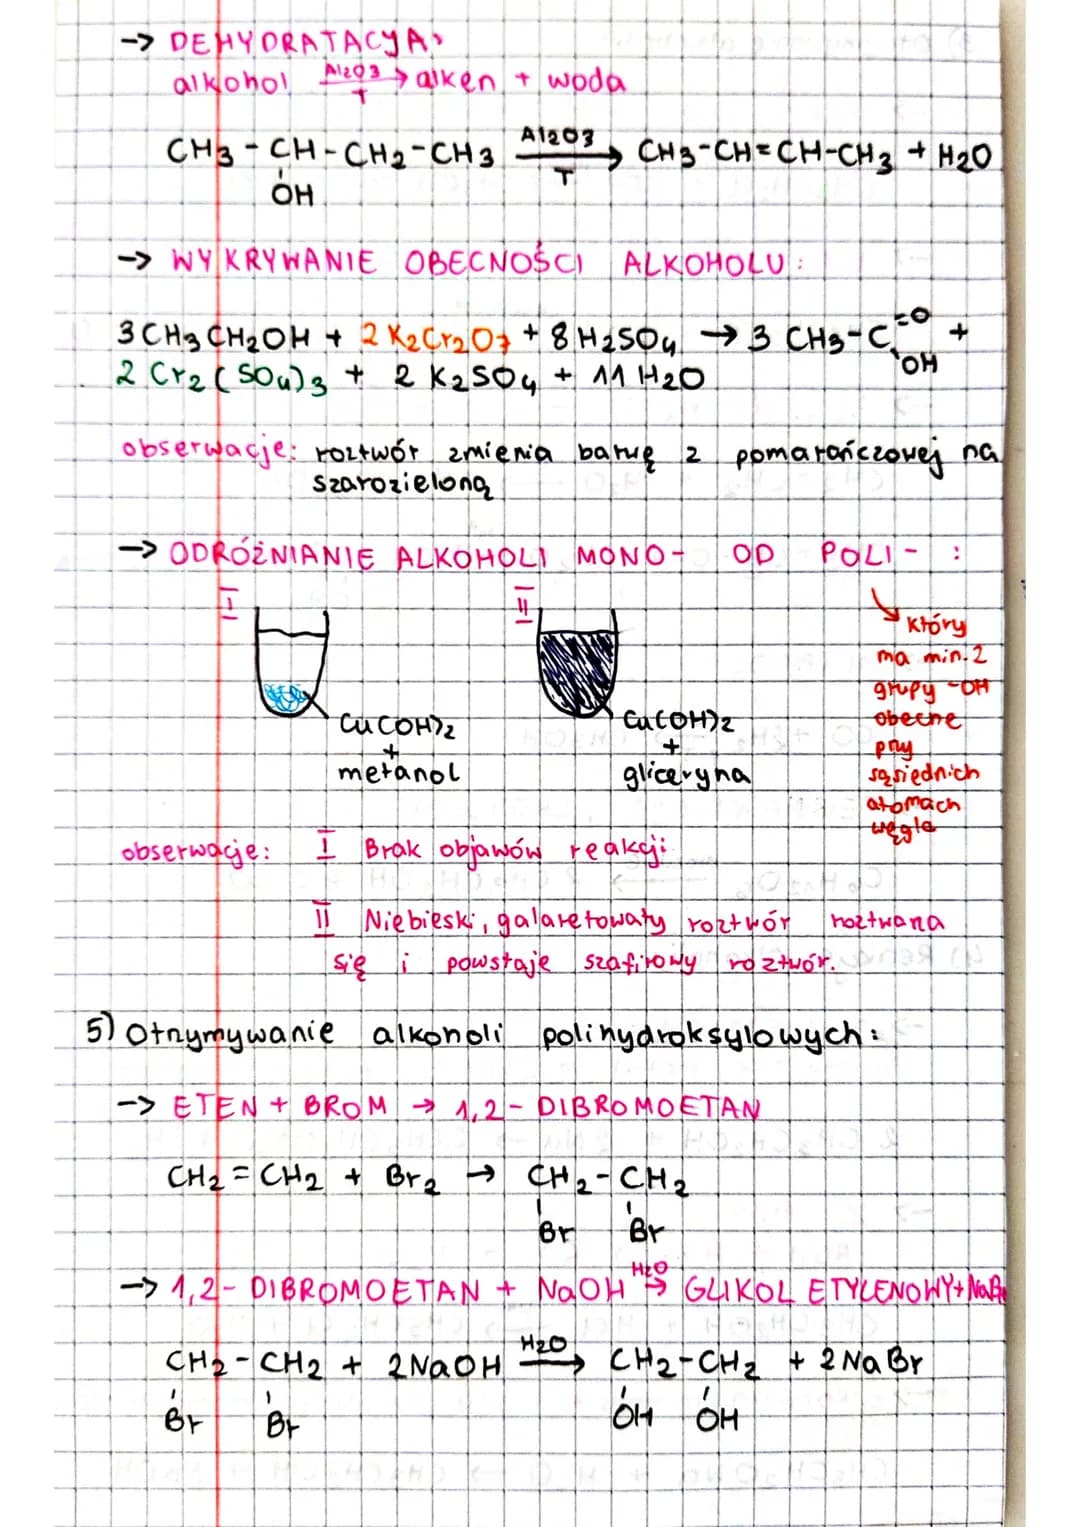 -> DEHYDRATACJA:
alkohol Al2O3 → alken + woda
T
CH3 - CH - CH2 - CH3 Al2O3 → CH3-CH=CH-CH3 + H2O
T
OH
-> WYKRYWANIE OBECNOŚCI ALKOHOLU:
3 CH3CH2OH + 2 K2Cr2O7 + 8 H2SO4 → 3 CH3-C =O OH +
2 Cr2(SO4)3 + 2 K2SO4 + 11 H2O
obserwacje: roztwór zmienia barwę z pomarańczowej na
szarozieloną
-> ODRÓŻNIANIE ALKOHOLI MONO- OD POLI- :
I
II
który
ma min. 2
grupy -OH
obecne
przy
sąsiednich
atomach
węgla
Cu(OH)2
+
metanol
Cu(OH)2
+
gliceryna
obserwacje: I Brak objawów reakcji
II Niebieski, galaretowaty roztwór roztwarza
się i powstaje szafirowy roztwór.
5) Otrzymywanie alkoholi polihydroksylowych:
-> ETEN + BROM → 1,2- DIBROMOETAN
CH2 = CH2 + Br2 → CH2 - CH2
Br Br
-> 1,2- DIBROMOETAN + NaOH H2O → GLIKOL ETYLENOWY + NaBr
CH2 - CH2 + 2NaOH H2O → CH2-CH2 + 2 NaBr
Br Br OH OH